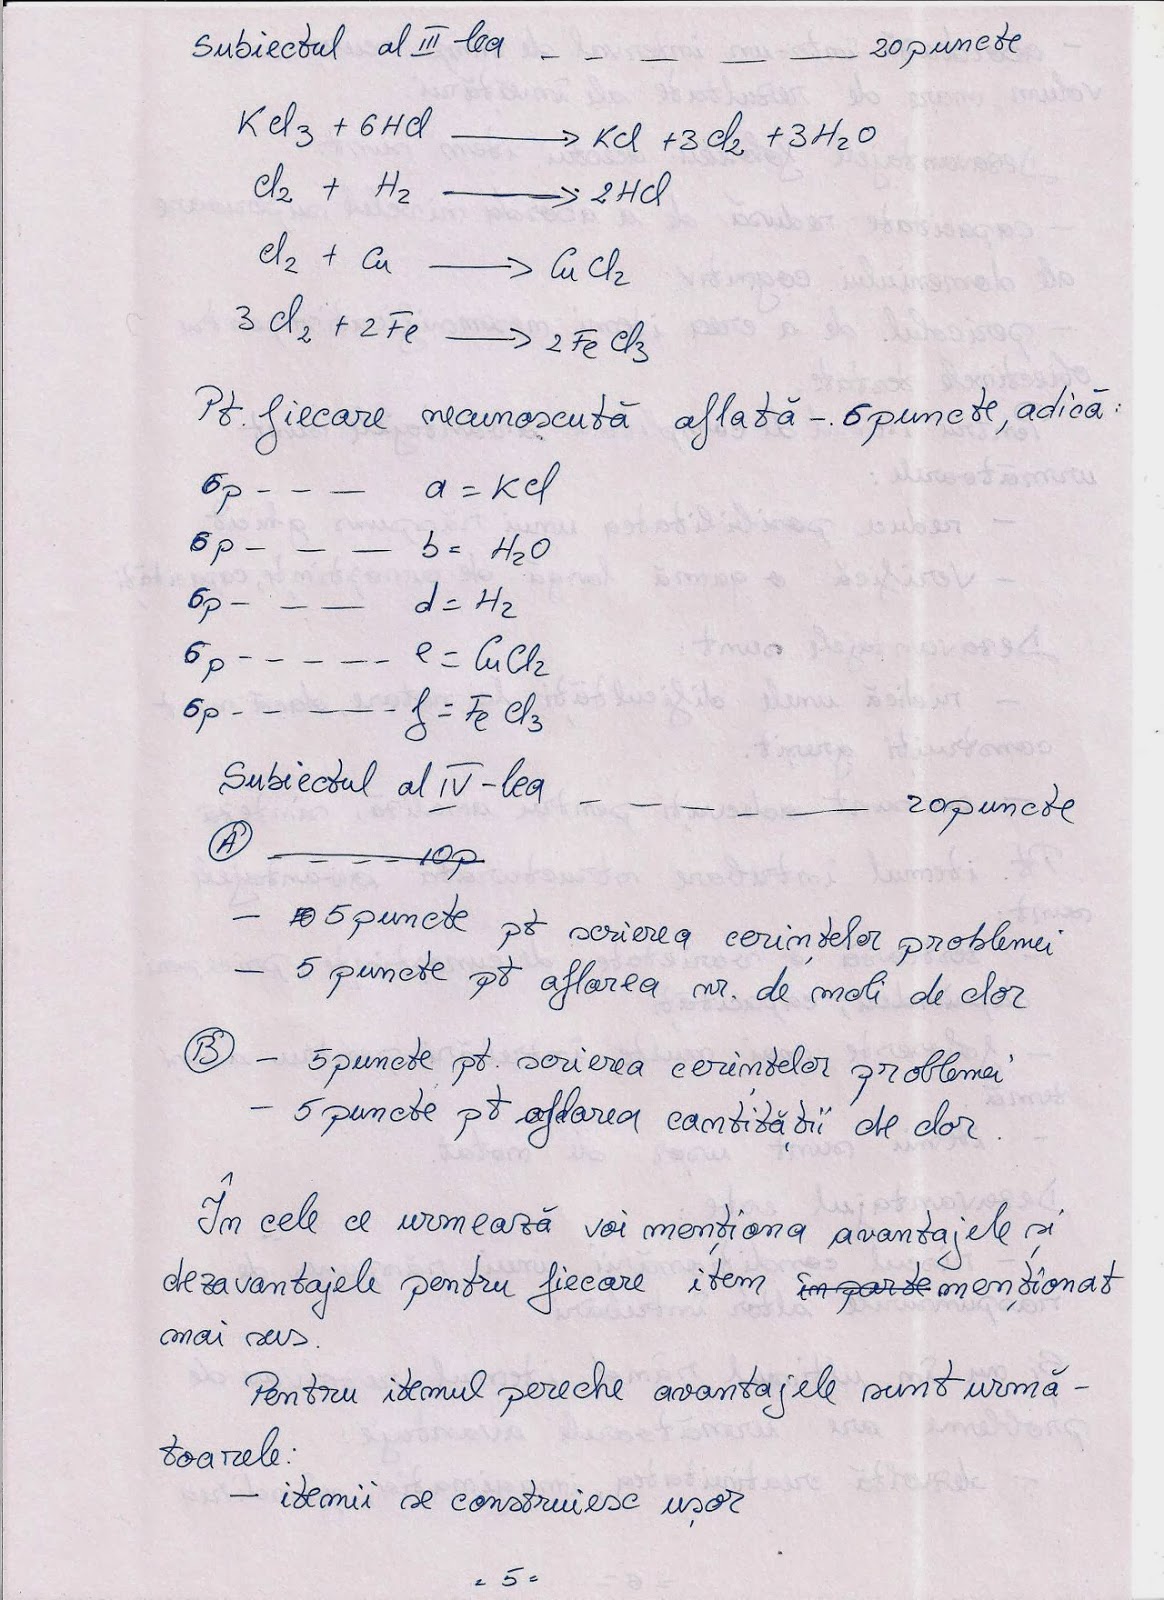 Subiectul al III-lea _ _ _ _ _ 20 puncte
KCl3 + 6HCl → KCl + 3Cl2 + 3H2O
Cl2 + H2 → 2HCl
Cl2 + Cu → CuCl2
3Cl2 + 2Fe → 2FeCl3
Pt. fiecare necunoscută aflată - 5 puncte, adică:
5p - - - a = KCl
5p - - - b = H2O
5p - - - d = H2
5p - - - - - e = CuCl2
5p - - - - - f = FeCl3
Subiectul al IV-lea _ _ _ _ _ 20 puncte
(A) _ _ _ _ 10p
- 5 puncte pt scrierea cerințelor problemei
- 5 puncte pt aflarea nr. de moli de clor
(B) - 5 puncte pt. scrierea cerințelor problemei
- 5 puncte pt aflarea cantității de clor.
În cele ce urmează voi menționa avantajele și
dezavantajele pentru fiecare item in parte menționat
mai sus.
Pentru itemul pereche avantajele sunt urmă-
toarele:
- itemii se construiesc ușor
- 5 -